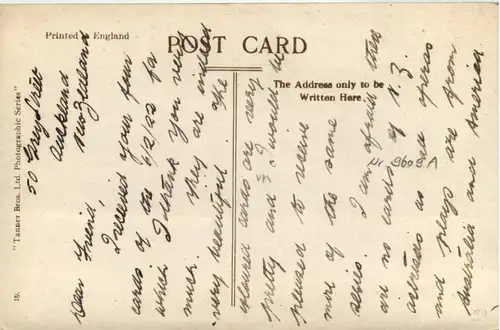 Printed in England
POST CARD
The Address only to be
Written Here.
"Tanner Bros. Ltd. Photographic Series"
19.
50 Grey Street
Auckland
New Zealand
Dear Friend,
I received your four
cards of the 6/2/23 for
which I thank you very
much. They are indeed
very beautiful. The
coloured cards are very
pretty and I would be
pleased to receive
more of the same
series. I am afraid there
are no cards of N.Z.
actresses as our operas
and plays are from
Australia and America
9609A